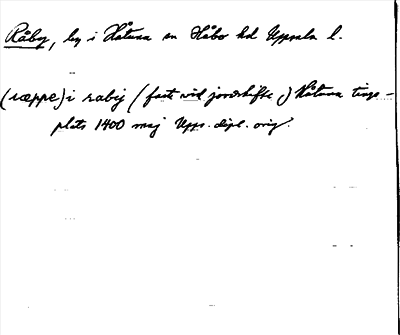 Råby, by i Håtuna sn Håbo hd Uppsala l.
(ræppe) i raby (faste vid jordskifte) Håtuna tings-
plats 1400 maj Upps. dipl. orig.